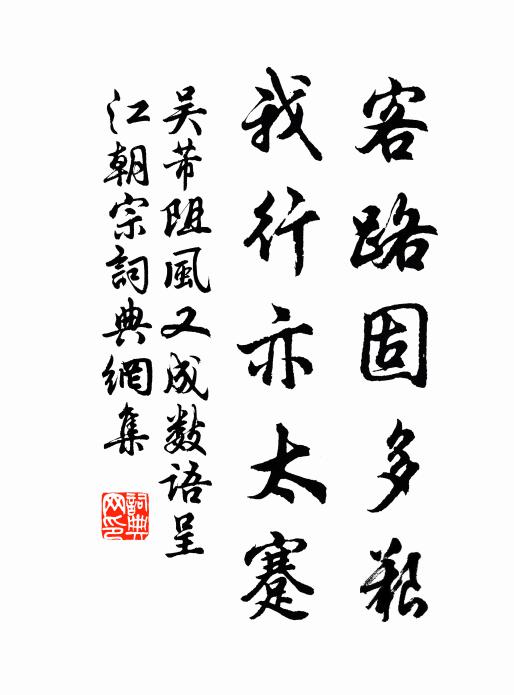 客路固多艱
我行亦太蹇
吴芾阻風又成数語呈
江朝宗詞典網集
詞典网印